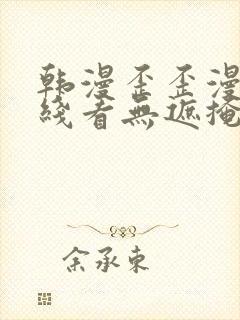 韩漫歪歪漫
线看無遮掩
余承東